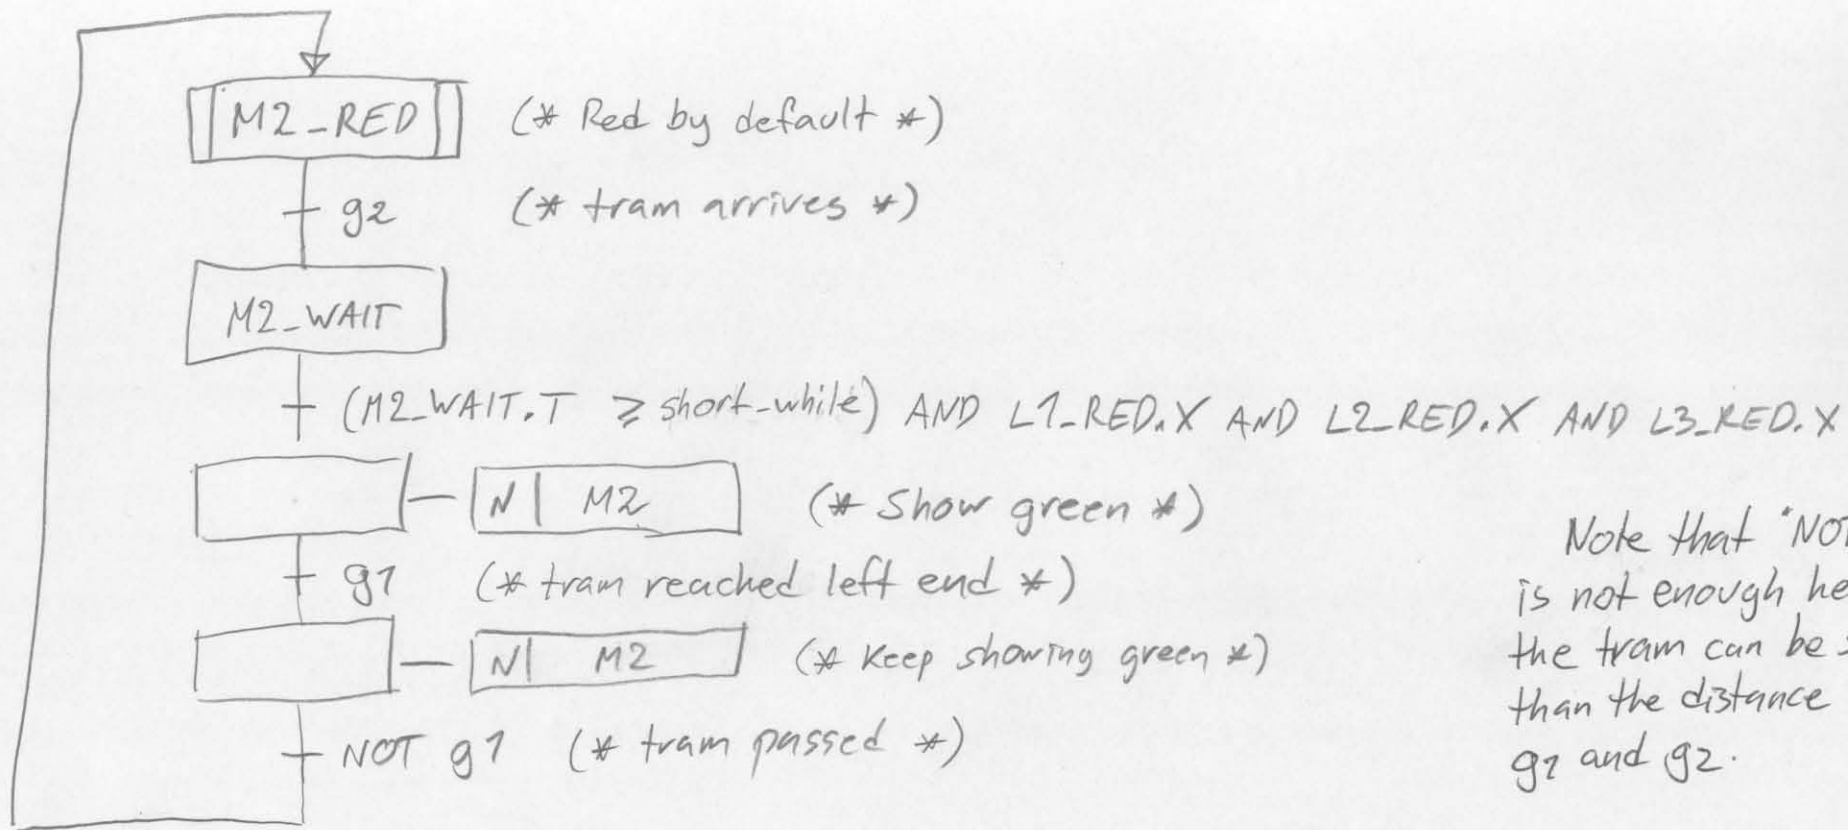 M2_RED (* Red by default *)
g2 (* tram arrives *)
M2_WAIT
(M2_WAIT.T ≥ short_while) AND L1_RED.X AND L2_RED.X AND L3_RED.X
N M2 (* Show green *)
g1 (* tram reached left end *)
N M2 (* Keep showing green *)
NOT g1 (* tram passed *)
Note that "NOT
is not enough
the tram can be
than the distance
g1 and g2.